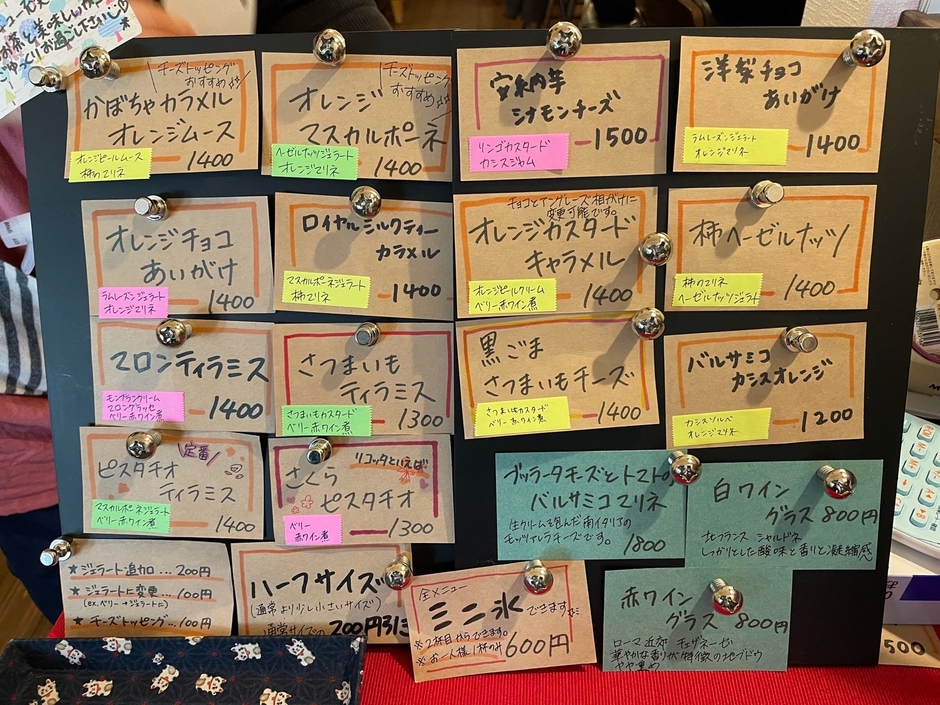 チーズトッピング
おすすめ
かぼちゃカラメル
オレンジムース
オレンジピールムース
柿マリネ
1400
チーズトッピング
おすすめ
オレンジ
マスカルポーネ
ヘーゼルナッツジェラート
オレンジマリネ
1400
安納芋
シナモンチーズ
リンゴカスタード
カシスジャム
1500
洋梨チョコ
あいがけ
ラムレーズンジェラート
オレンジマリネ
1400
オレンジチョコ
あいがけ
ラムレーズンジェラート
オレンジマリネ
1400
ロイヤルミルクティー
カラメル
マスカルポーネジェラート
柿マリネ
1400
チョコとアングレーズ相がけに
変更可能です。
オレンジカスタード
キャラメル
オレンジピールクリーム
ベリー赤ワイン煮
1400
柿ヘーゼルナッツ
柿マリネ
ヘーゼルナッツジェラート
1400
マロンティラミス
モンブランクリーム
マロングラッセ
ベリー赤ワイン煮
1400
さつまいも
ティラミス
さつまいもカスタード
ベリー赤ワイン煮
1300
黒ごま
さつまいもチーズ
さつまいもカスタード
ベリー赤ワイン煮
1400
バルサミコ
カシスオレンジ
カシスソルベ
オレンジマリネ
1200
定番
ピスタチオ
ティラミス
マスカルポーネジェラート
ベリー赤ワイン煮
1400
リコッタといえば
さくら
ピスタチオ
ベリー
赤ワイン煮
1300
ブッラータチーズとトマトの
バルサミコマリネ
生クリームを包んだ南イタリアの
モッツァレラチーズです。
1800
白ワイン
グラス 800円
北フランス シャルドネ
しっかりとした酸味と香りと凝縮感
★ジェラート追加...200円
★ジェラートに変更...100円
(ex.ベリー→ジェラートに)
★チーズトッピング...100円
ハーフサイズ
(通常より少し小さいサイズ)
通常サイズの200円引き
全メニュー
ミニ氷できます
※2杯目からできます。
※お一人様1杯のみ
600円
赤ワイン
グラス 800円
ローマ近郊 チェザネーゼ
華やかな香りが特徴の地ブドウ
やや重め
500